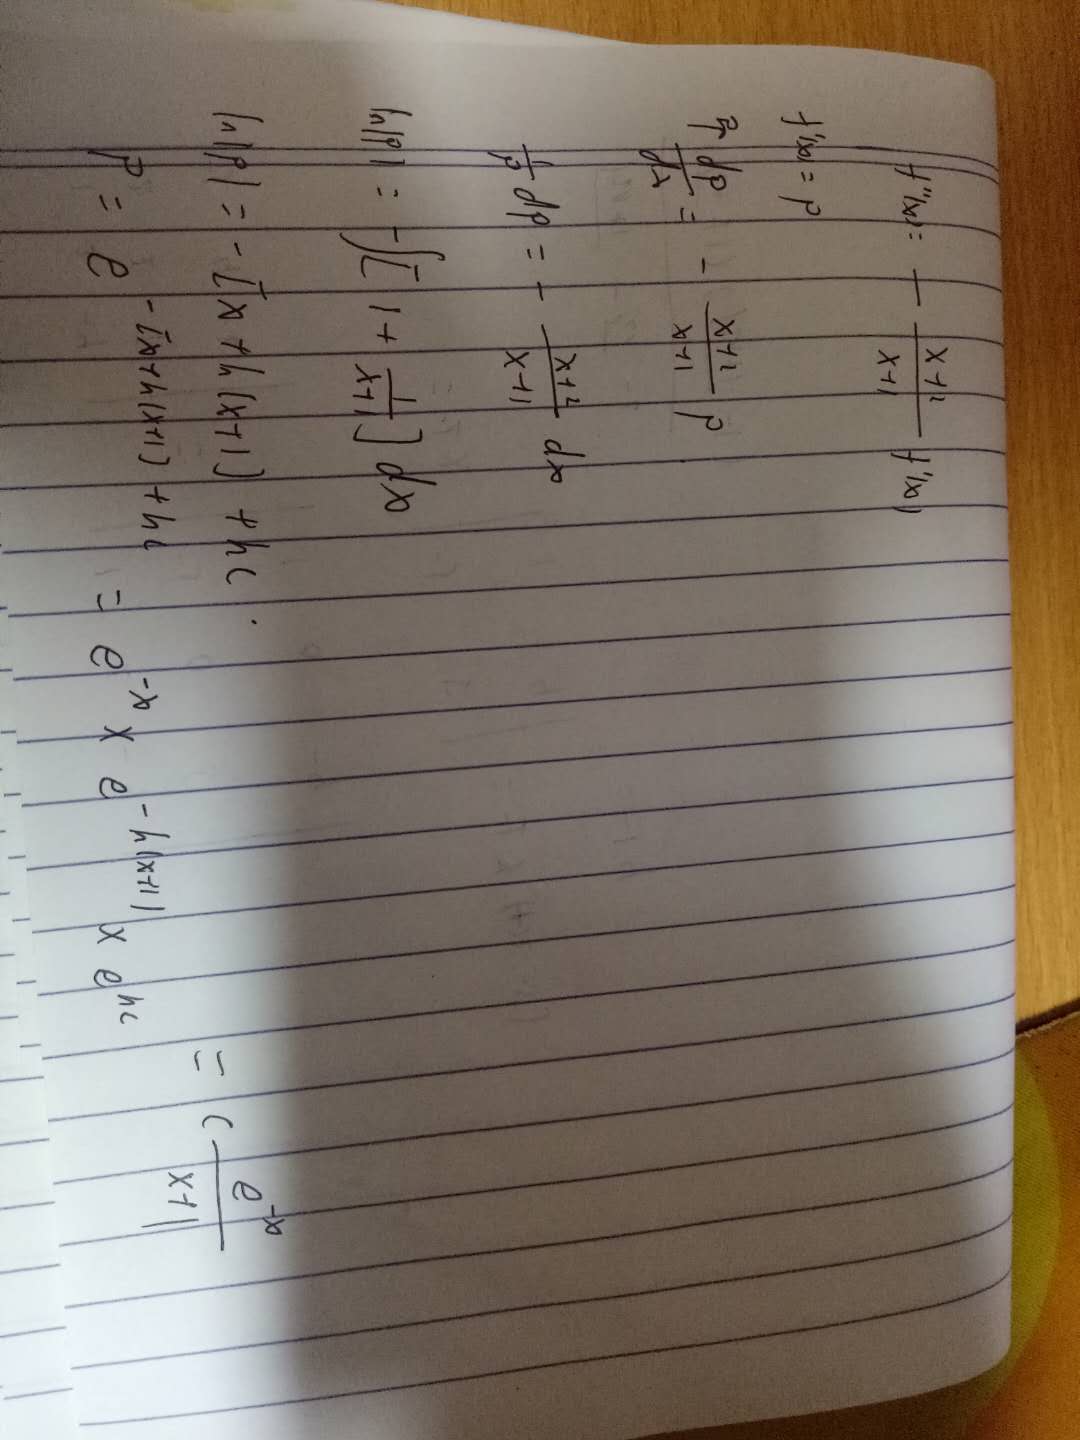 f''(x) = - \frac{x+2}{x+1} f'(x)
f'(x) = p
\frac{dp}{dx} = - \frac{x+2}{x+1} p
\frac{1}{p} dp = - \frac{x+2}{x+1} dx
ln|p| = -\int [ 1 + \frac{1}{x+1} ] dx
ln|p| = - [x + ln(x+1)] + lnc.
P = e^{-[x+ln(x+1)]+lnc} = e^{-x} × e^{-ln(x+1)} × e^{lnc} = c \frac{e^{-x}}{x+1}